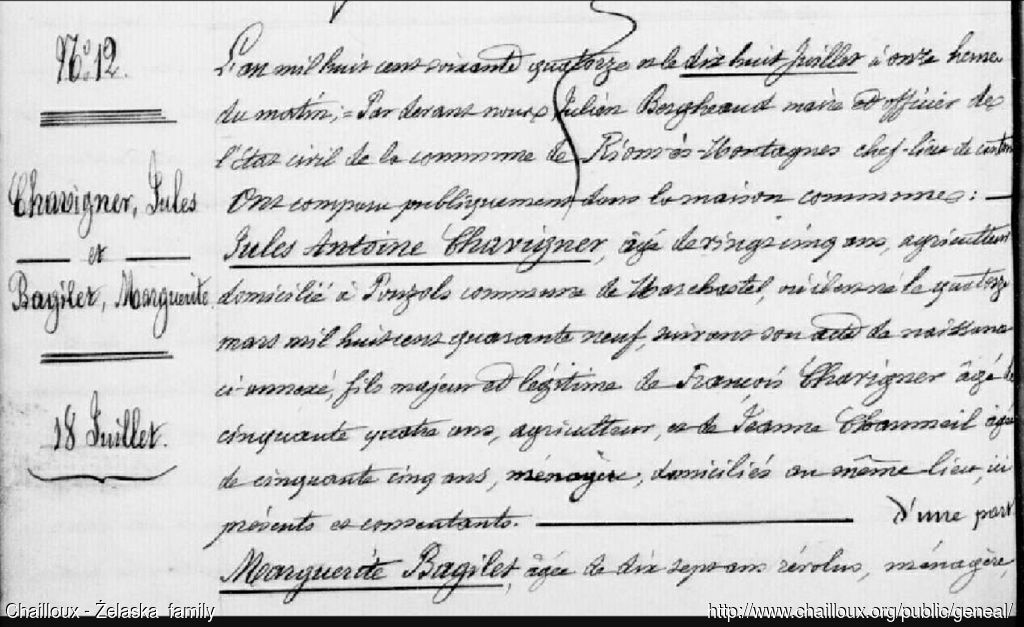 N.° 12.
Chavigner, Jules
et
Bagilet, Marguerite
18 Juillet.
L'an mil huit cent soixante quatorze et le dix huit Juillet à onze heure
du matin; = Par devant nous Julien Bergheaud maire et officier de
l'état civil de la commune de Riom-ès-Montagnes chef-lieu de canton
Ont comparu publiquement dans la maison commune:
Jules Antoine Chavigner, âgé de vingt cinq ans, agriculteur
domicilié à Pouzols commune de Marchastel, où il est né le quatorze
mars mil huit cent quarante neuf, suivant son acte de naissance
ci-annexé, fils majeur et légitime de François Chavigner âgé de
cinquante quatre ans, agriculteur, et de Jeanne Chaumeil âgée
de cinquante cinq ans, ménagère, domiciliés au même lieu, ici
présents et consentants. d'une part
Marguerite Bagilet, âgée de dix sept ans révolus, ménagère,
Chailloux - Żelaska family
http://www.chailloux.org/public/geneal/